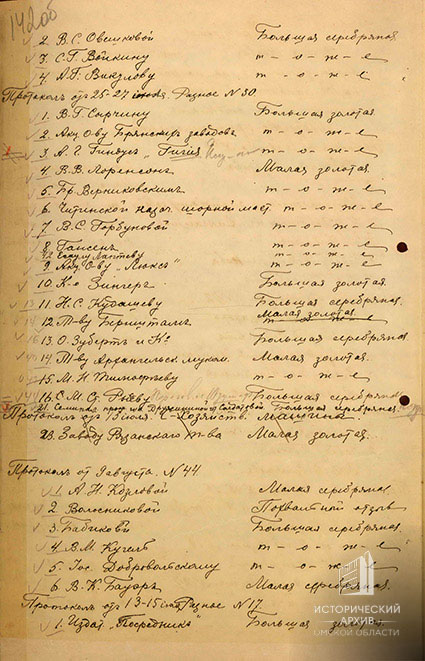 142об
2. В.С. Овешковой Большая серебряная
3. С.Г. Войкину т-о-ж-е
4. А.Г. т-о-ж-е
Протоколъ отъ 25-27 июня. Разное № 30
1. В.Г. Сорчину Большая золотая
2. Акц. О-ву Брянских заводовъ т-о-ж-е
3. А.Г. Гиндусъ „Гигия" т-о-ж-е
4. В.В. Лоренсонъ Малая золотая.
5. Бр. Верниковскимъ т-о-ж-е
6. Читинской казач. шорной маст. т-о-ж-е
7. В.С. Горбуновой т-о-ж-е
8. Гансенъ т-о-ж-е
т-о-ж-е
9. Акц. О-ву „Люксъ" т-о-ж-е
10. К-о Зингеръ Большая золотая.
11. Н.С. Кудашеву Большая серебряная
Малая золотая
12. Т-ву Бернштамъ т-о-ж-е
13. О. Зубертъ и К° Большая серебряная.
14. Т-ву Архангельск. муком. Малая золотая.
15. М.Н. Тимофееву т-о-ж-е
16. С.М. Большая серебряная
21. Большая серебряная.
Протоколъ отъ 15 июля. С-Хозяйств. машины
23. Заводу Рязанскаго т-ва Малая золотая.
Протоколъ от 9 августа. № 44
1. А.Н. Козловой Малая серебряная
2. Волосниковой Похвальной отзывъ
3. Бабиковой Большая серебряная.
4. В.М. т-о-ж-е
5. Іос. Добровольскому т-о-ж-е
6. В.К. Бауэръ Малая серебряная.
Протоколъ отъ 13-15 Разное № 17.
1. Издат. „Посредникъ" Большая золотая.
ИСТОРИЧЕСКИЙ
АРХИВ
ОМСКОЙ ОБЛАСТИ